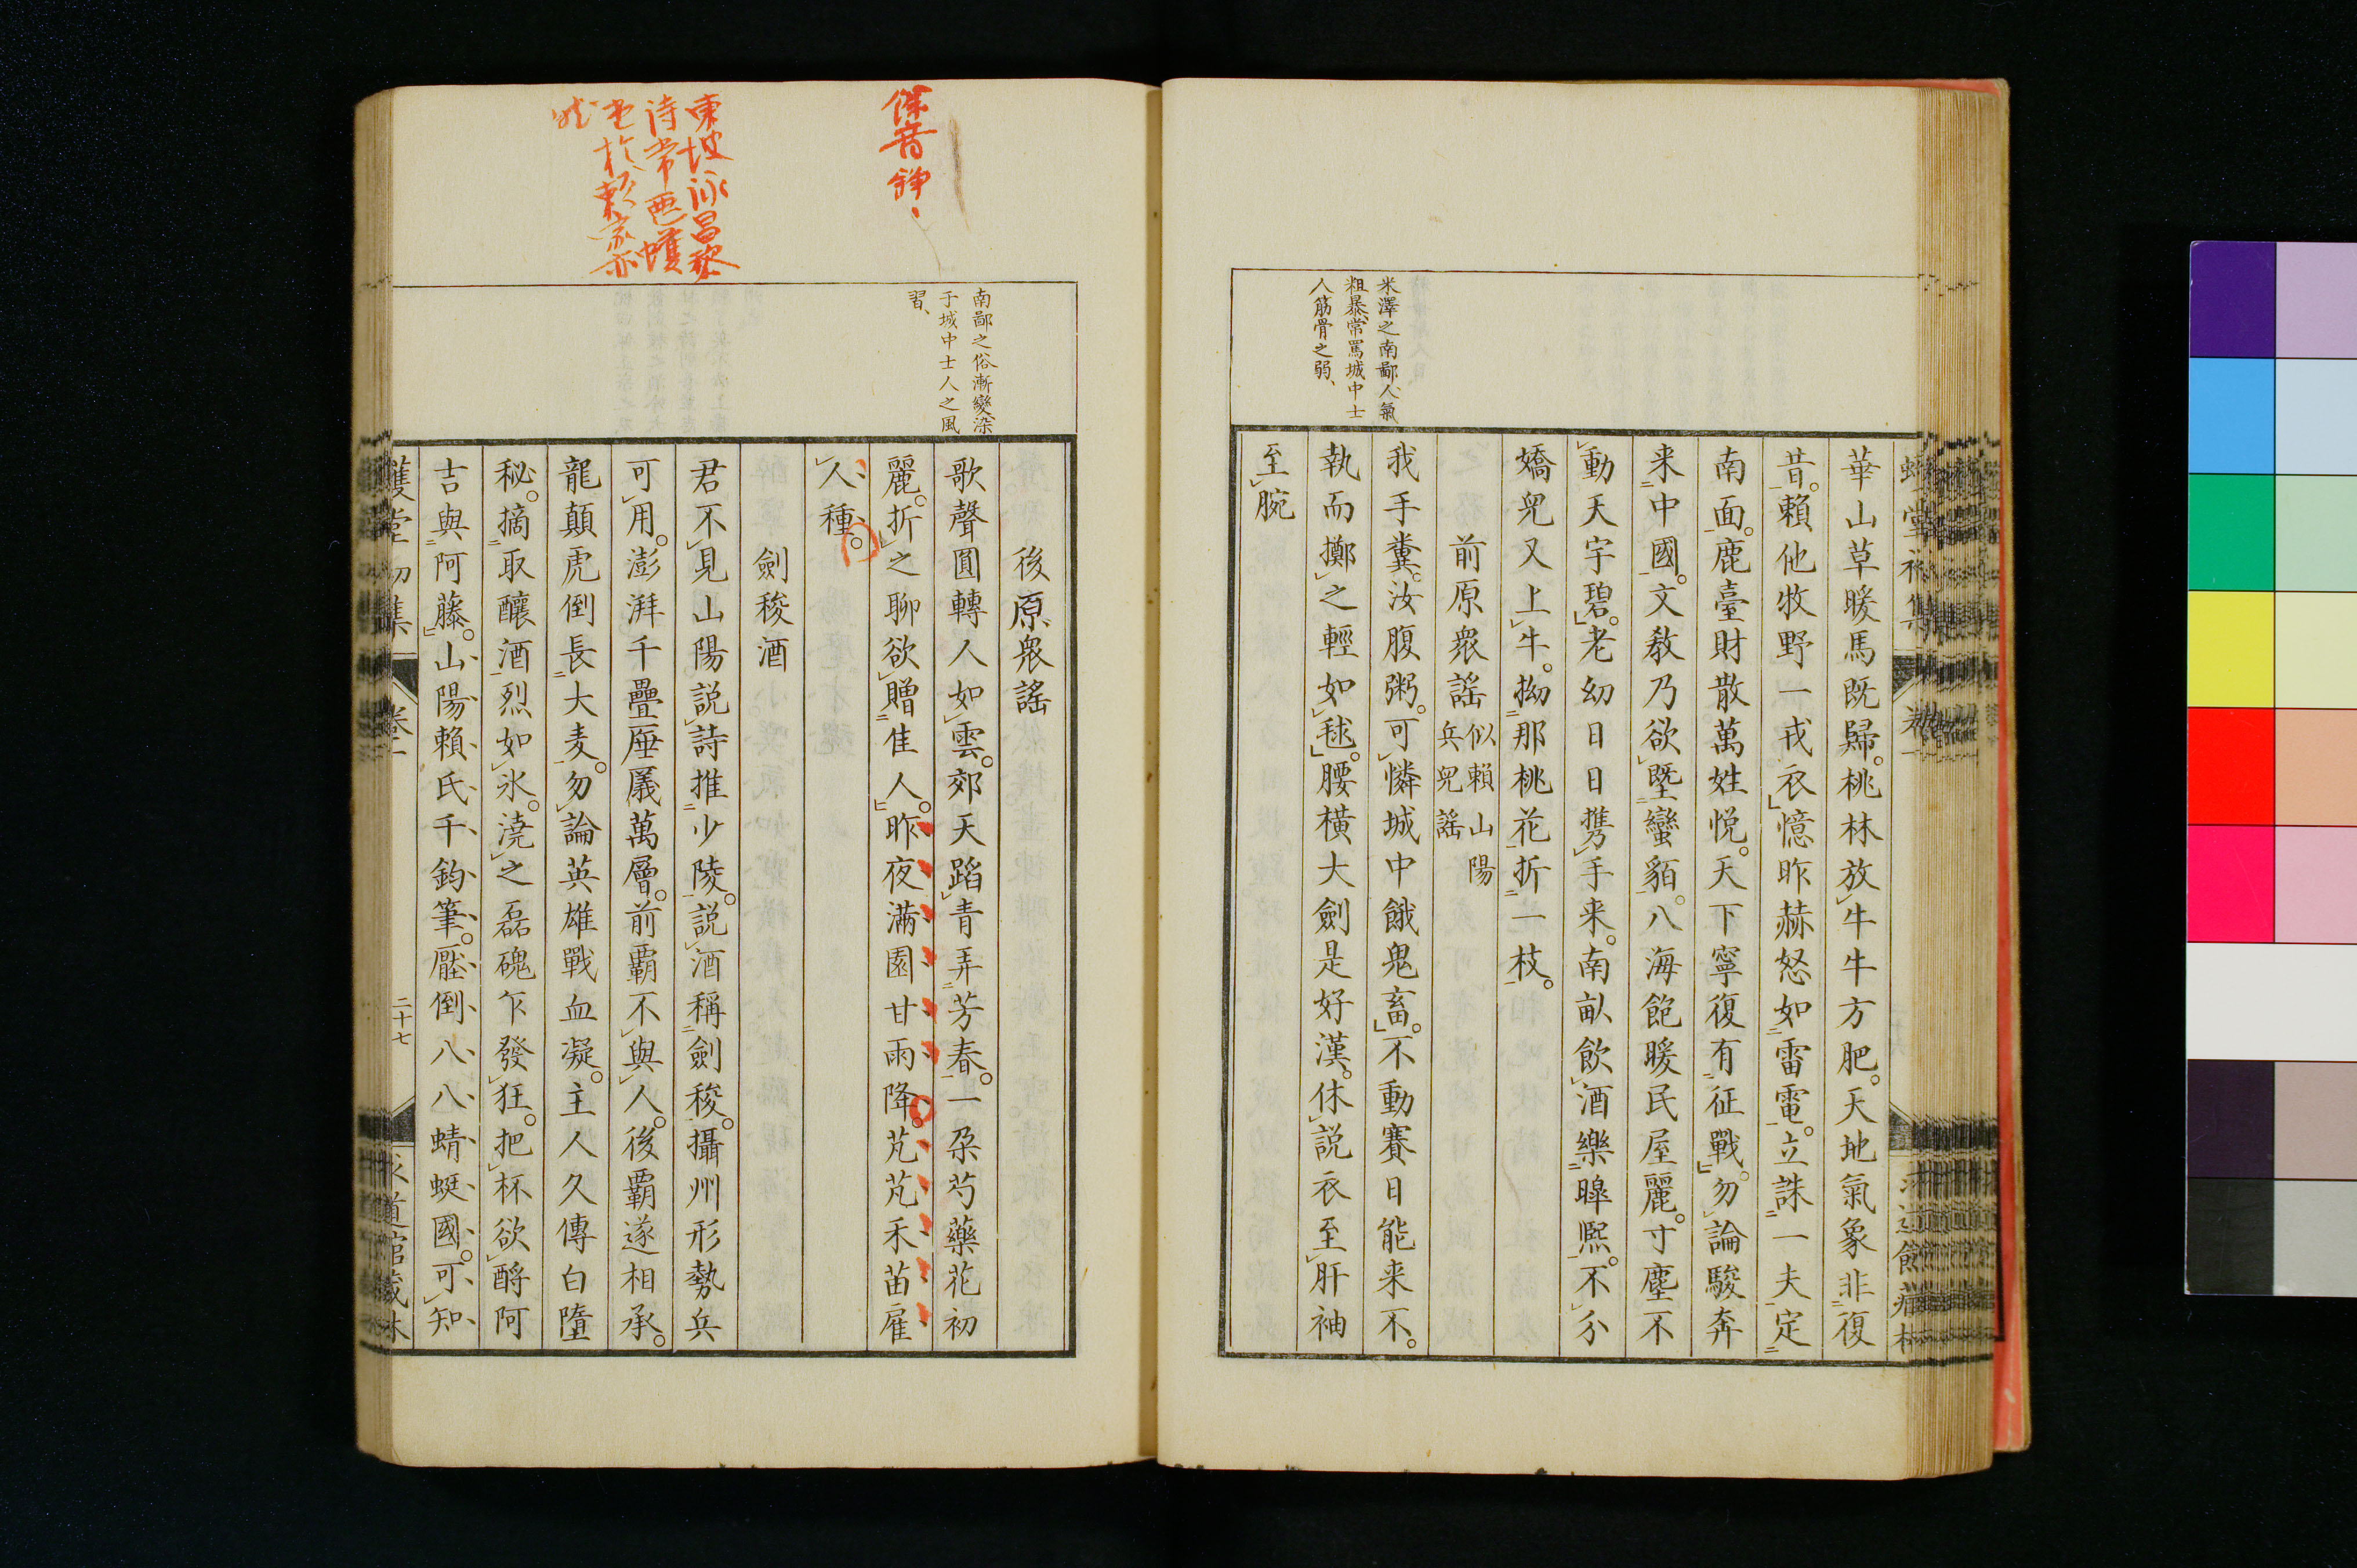 米澤之南鄙人氣
粗暴、常罵城中士
人筋骨之弱、
華山草暖馬既歸。桃林放牛牛方肥。天地氣象非復
昔。賴他牧野一戎衣憶昨赫怒如雷電。立誅一夫定
南面。鹿臺財散萬姓悦。天下寧復有征戰。勿論駿奔
来中國。文教乃欲曁蠻貊。八海飽暖民屋麗。寸塵不
動天宇碧。老幼日日携手来。南畝飲酒樂皥熙。不分
嬌兒又上牛。拗那桃花折一枝。
前原衆謠
似賴山陽
兵兒謠
我手糞。汝腹粥。可憐城中餓鬼畜。不動賽日能来不。
執而擲之輕如毬。腰横大劍是好漢。休説衣至肝袖
至腕
南鄙之俗漸變染
于城中士人之風
習、
後原衆謠
歌聲圓轉人如雲。郊天蹈青弄芳春。一朶芍藥花初
麗。折之聊欲贈佳人。昨夜滿園甘雨降。芃芃禾苗雇
人種。
劍稜酒
君不見山陽説詩推少陵。説酒稱劍稜。攝州形勢兵
可用。澎湃千疊厜㕒萬層。前覇不與人。後覇遂相承。
龍顛虎倒長大麦。勿論英雄戰血凝。主人久傳白墮
秘。摘取釀酒烈如氷。澆之磊磈乍發狂。把杯欲酹阿
吉與阿藤。山陽賴氏千鈞筆。壓倒八八蜻蜓國。可知
蠖堂初集
卷一
二十七
求道館藏本
東坡泳昌黎
诗常
於賴家亦